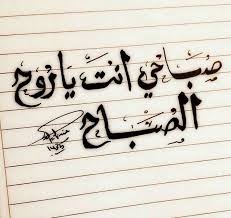 صِبَاحي انتَ يَا رُوح
الصَبَاح